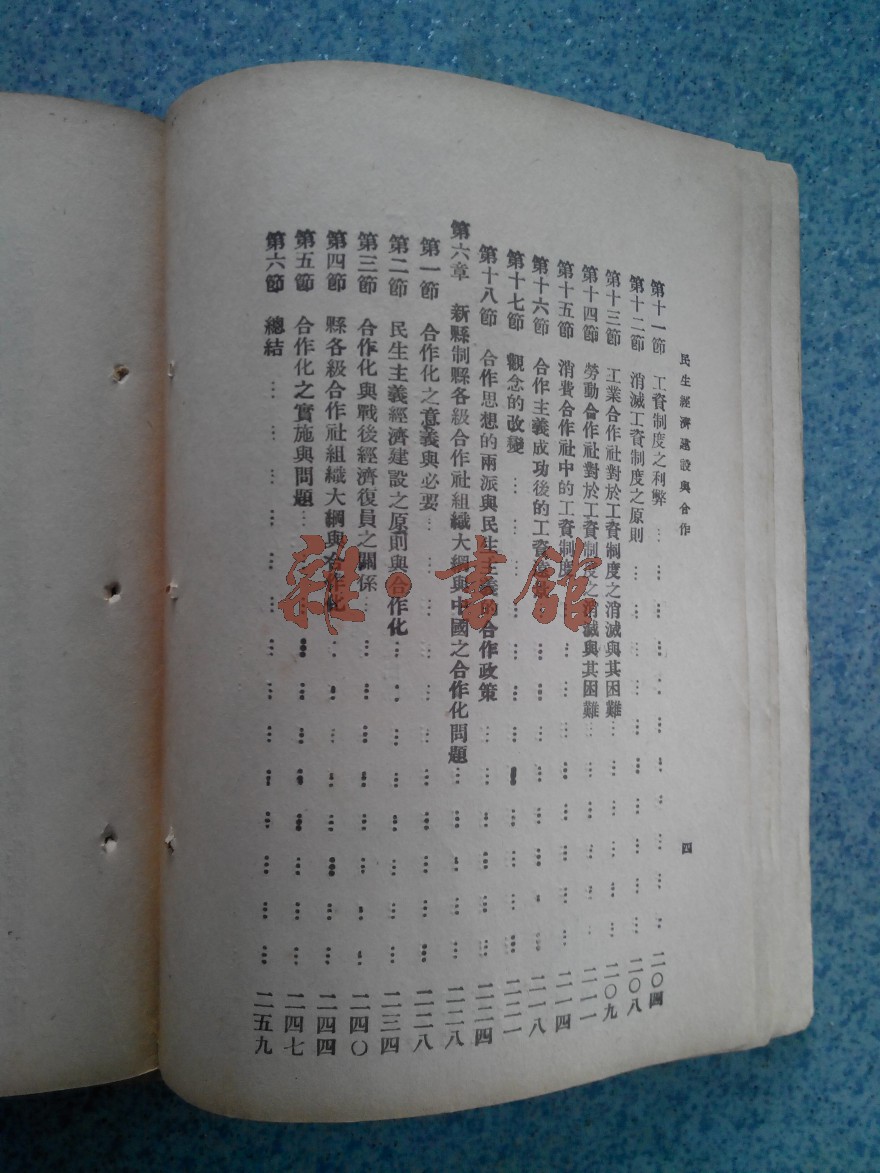 民生經濟建設與合作
四
第十一節 工資制度之利弊 二〇四
第十二節 消滅工資制度之原則 二〇八
第十三節 工業合作社對於工資制度之消滅與其困難 二〇九
第十四節 勞動合作社對於工資制度之消滅與其困難 二一一
第十五節 消費合作社中的工資制度 二一四
第十六節 合作主義成功後的工資 二一八
第十七節 觀念的改變 二二一
第十八節 合作思想的兩派與民生主義的合作政策 二二四
第六章 新縣制縣各級合作社組織大綱與中國之合作化問題 二二八
第一節 合作化之意義與必要 二二八
第二節 民生主義經濟建設之原則與合作化 二三四
第三節 合作化與戰後經濟復員之關係 二四〇
第四節 縣各級合作社組織大綱與合作化 二四四
第五節 合作化之實施與問題 二四七
第六節 總結 二五九
雜·書館